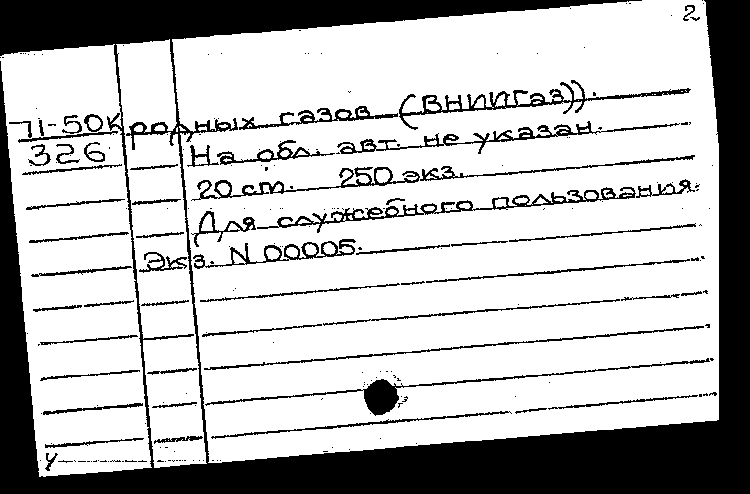 2
71-50К родных газов (ВНИИГаз)).
326 На обл. авт. не указан.
20 ст. 250 экз.
Для служебного пользования.
Экз. N 00005.
У